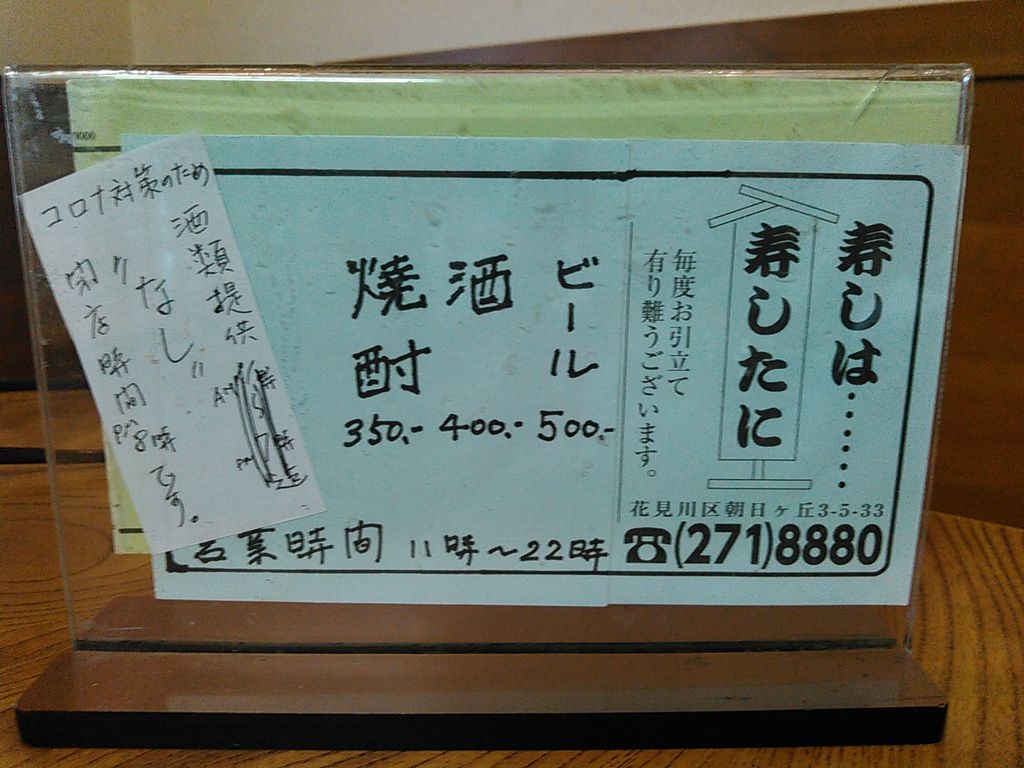 寿しは‥‥‥
寿したに
毎度お引立て
有り難うございます。
花見川区朝日ヶ丘3-5-33
☎(271)8880
ビール
500.-
酒
400.-
焼酎
350.-
営業時間 11時〜22時
コロナ対策のため
酒類提供
"なし"
閉店時間PM8時です。